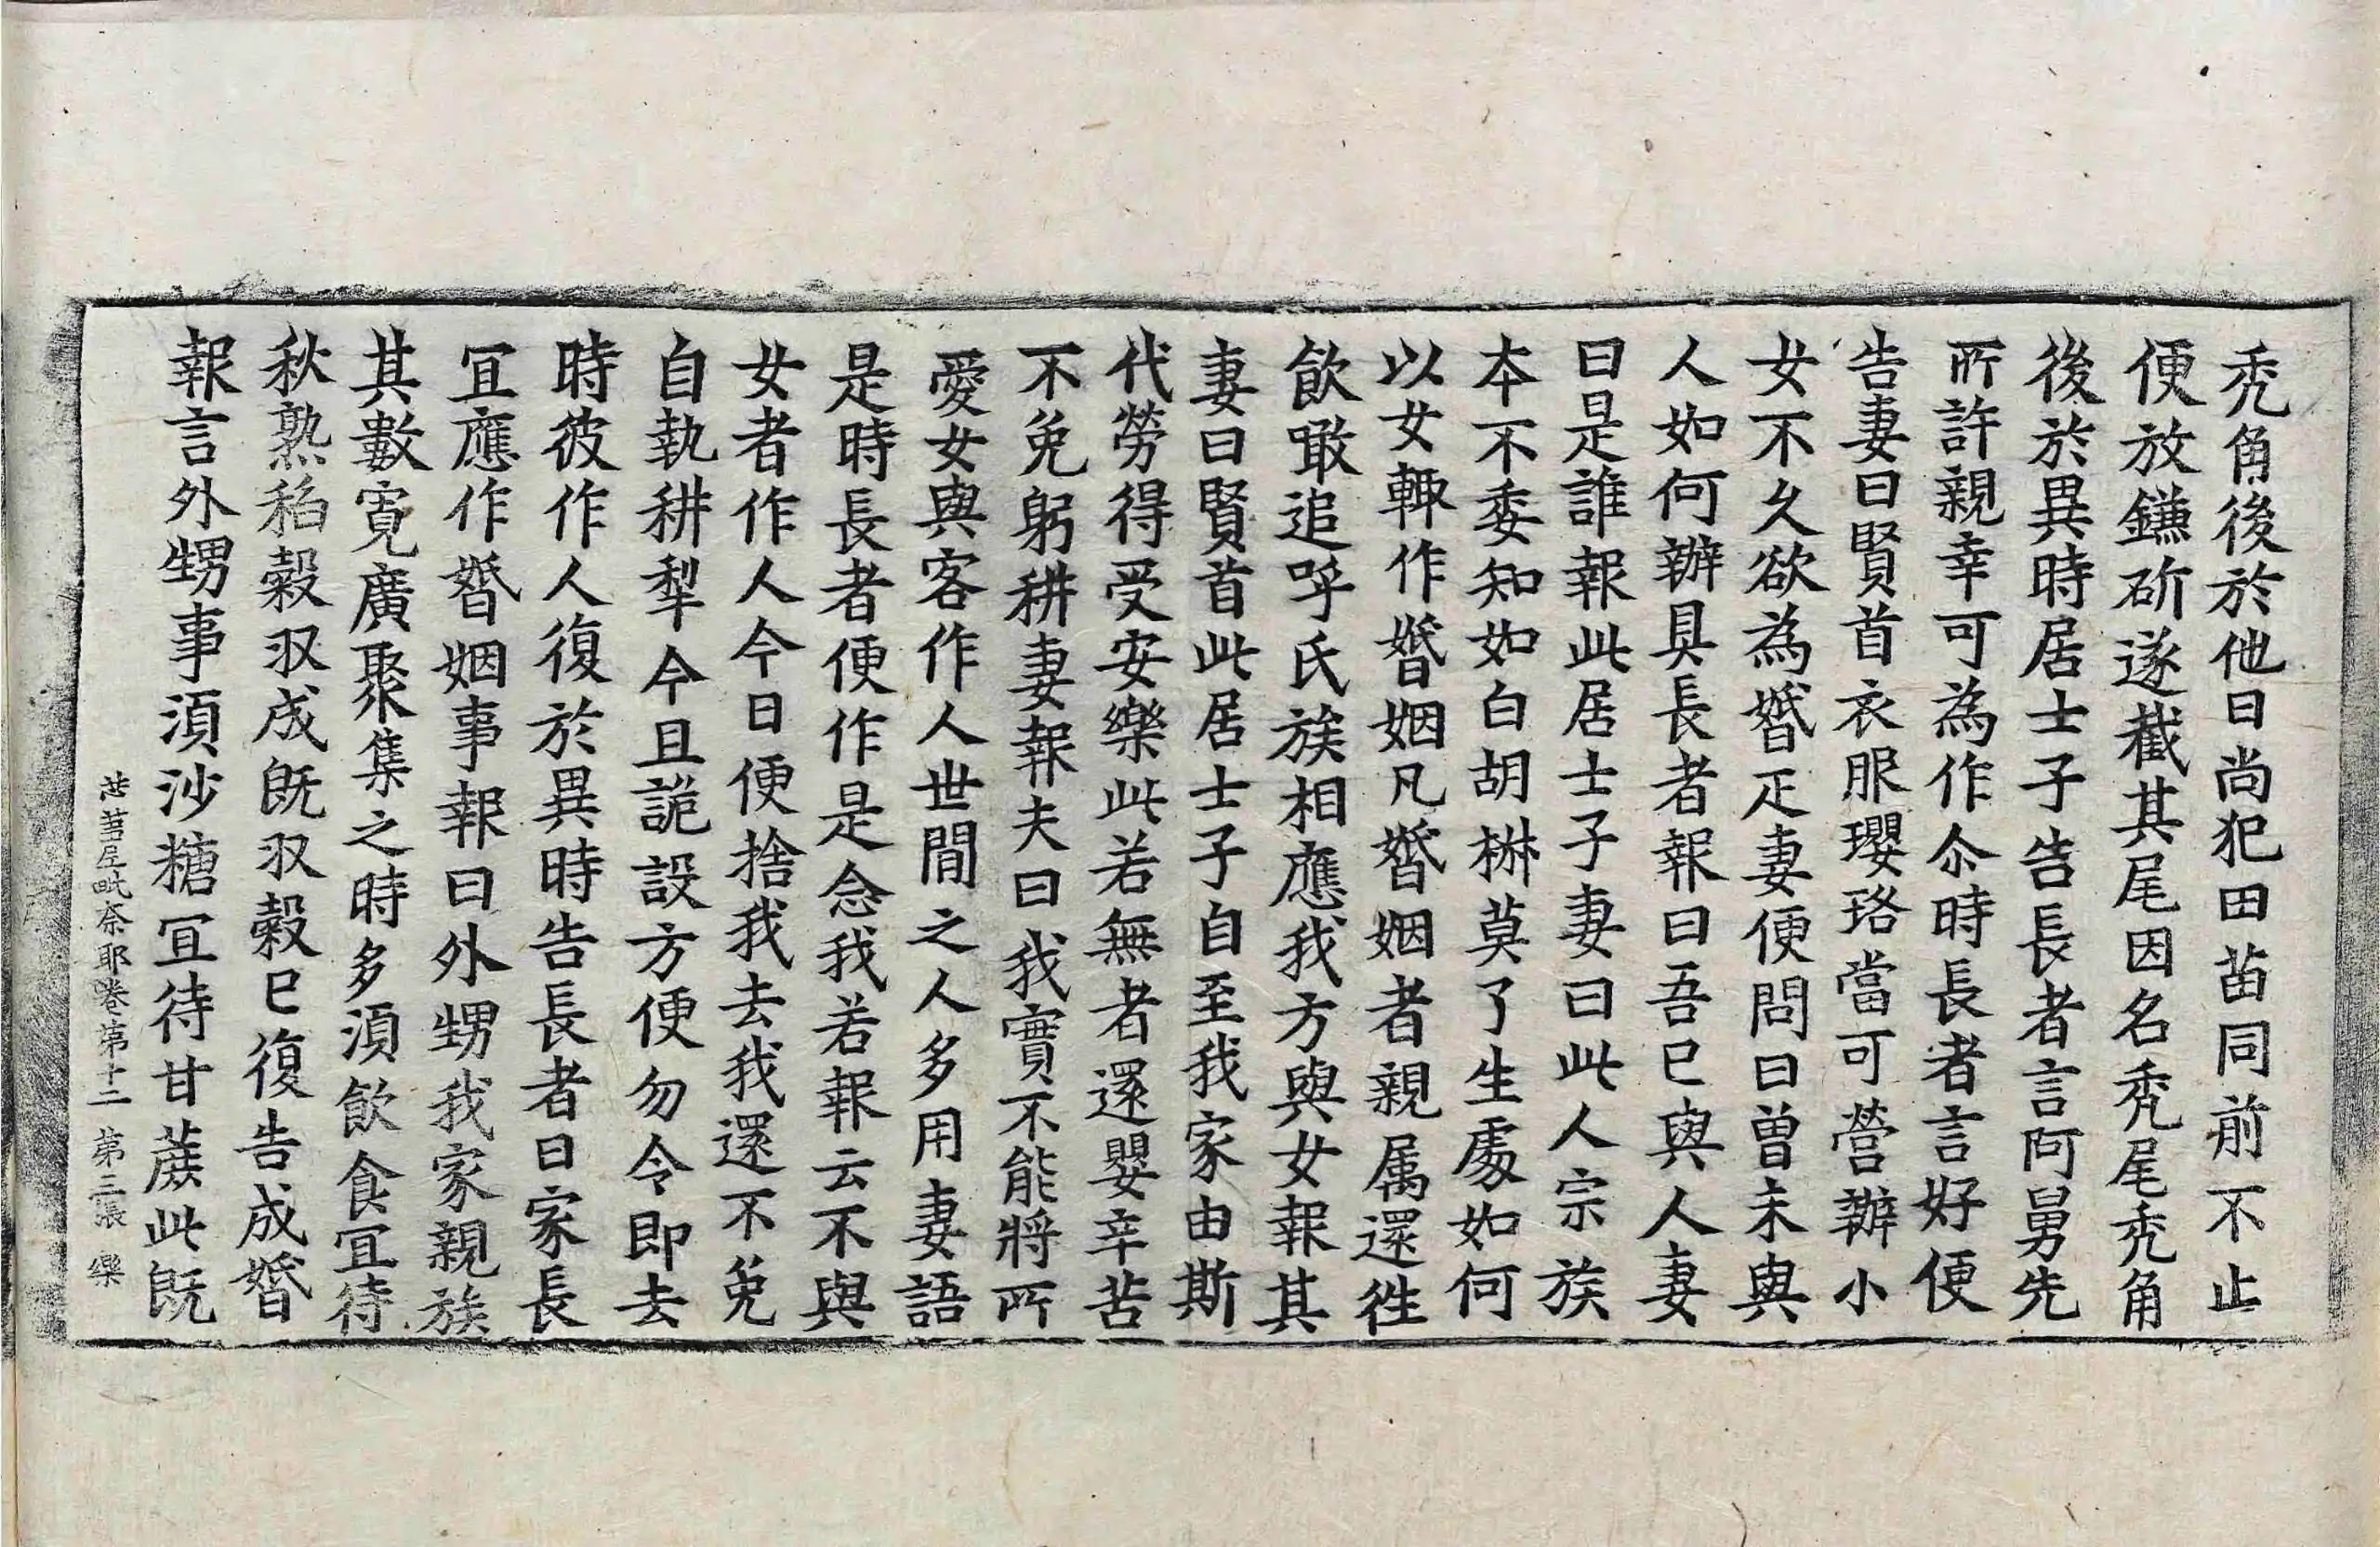 禿角後於他日尚犯田苗同前不止
便放鎌斫遂截其尾因名禿尾禿角
後於異時居士子告長者言阿舅先
所許親幸可為作尒時長者言好便
告妻曰賢首衣服瓔珞當可營辦小
女不久欲為婚㢧妻便問曰曾未與
人如何辦具長者報曰吾已與人妻
曰是誰報此居士子妻曰此人宗族
本不委知如白胡椒莫了生處如何
以女輙作婚姻凡婚姻者親属還徃
飲噉追呼氏族相應我方與女報其
妻曰賢首此居士子自至我家由斯
代勞得受安樂此若無者還嬰辛苦
不免躬耕妻報夫曰我實不能將所
愛女與客作人世間之人多用妻語
是時長者便作是念我若報云不與
女者作人今日便捨我去我還不免
自執耕犁今且詭設方便勿令即去
時彼作人復於異時告長者曰家長
冝應作婚姻事報曰外甥我家親族
其數寛廣聚集之時多湏飲食冝待
秋熟稻穀収成既収穀已復告成婚
報言外甥事湏沙糖冝待甘蔗此既
苾芻尼毗奈耶卷第十二 第三張 樂